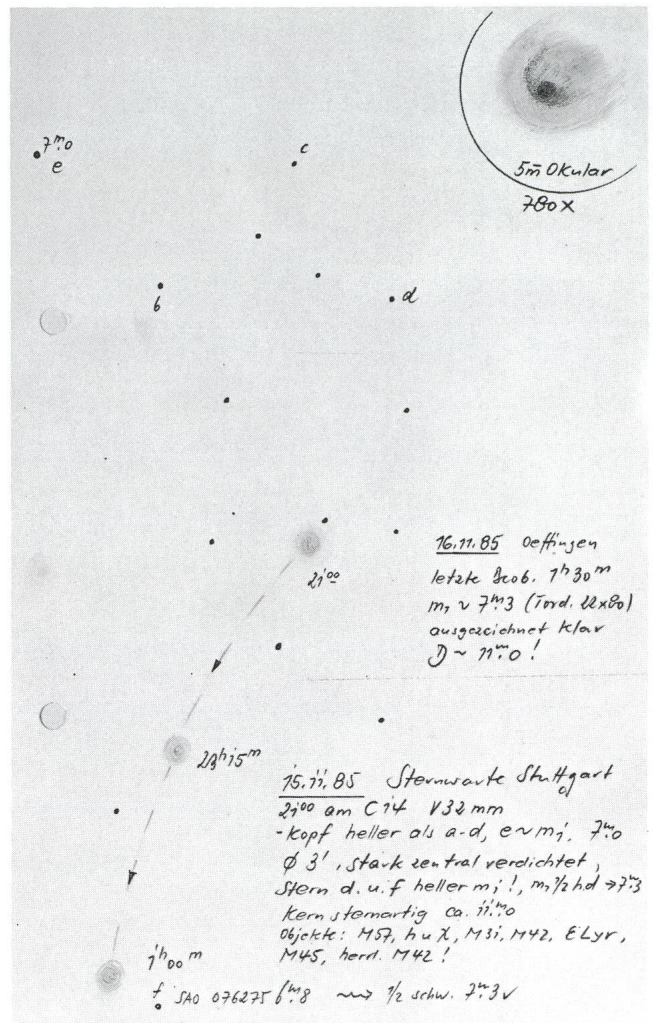 7ᵐ.0
e
c
5mm Okular
780x
b
d
21⁰⁰
16.11.85 Oeffingen
letzte Beob. 1ʰ30ᵐ
m₁ ~ 7ᵐ.3 (Tord. 22x80)
ausgezeichnet klar
D ~ 11ᵐ.0 !
23ʰ15ᵐ
15.11.85 Sternwarte Stuttgart
21⁰⁰ am C14 V32mm
- Kopf heller als a-d, e~m₁. 7ᵐ.0
Ø 3', stark zentral verdichtet,
Stern d. u. f heller m₁!, m₁ 1/2 hd → 7ᵐ.3
Kern sternartig ca. 11ᵐ.0
Objekte: M57, h u χ, M31, M42, ε Lyr,
M45, herrl. M42!
1ʰ00ᵐ
f SAO 076275 6ᵐ.8 ⟿ 1/2 schw. 7ᵐ.3 v